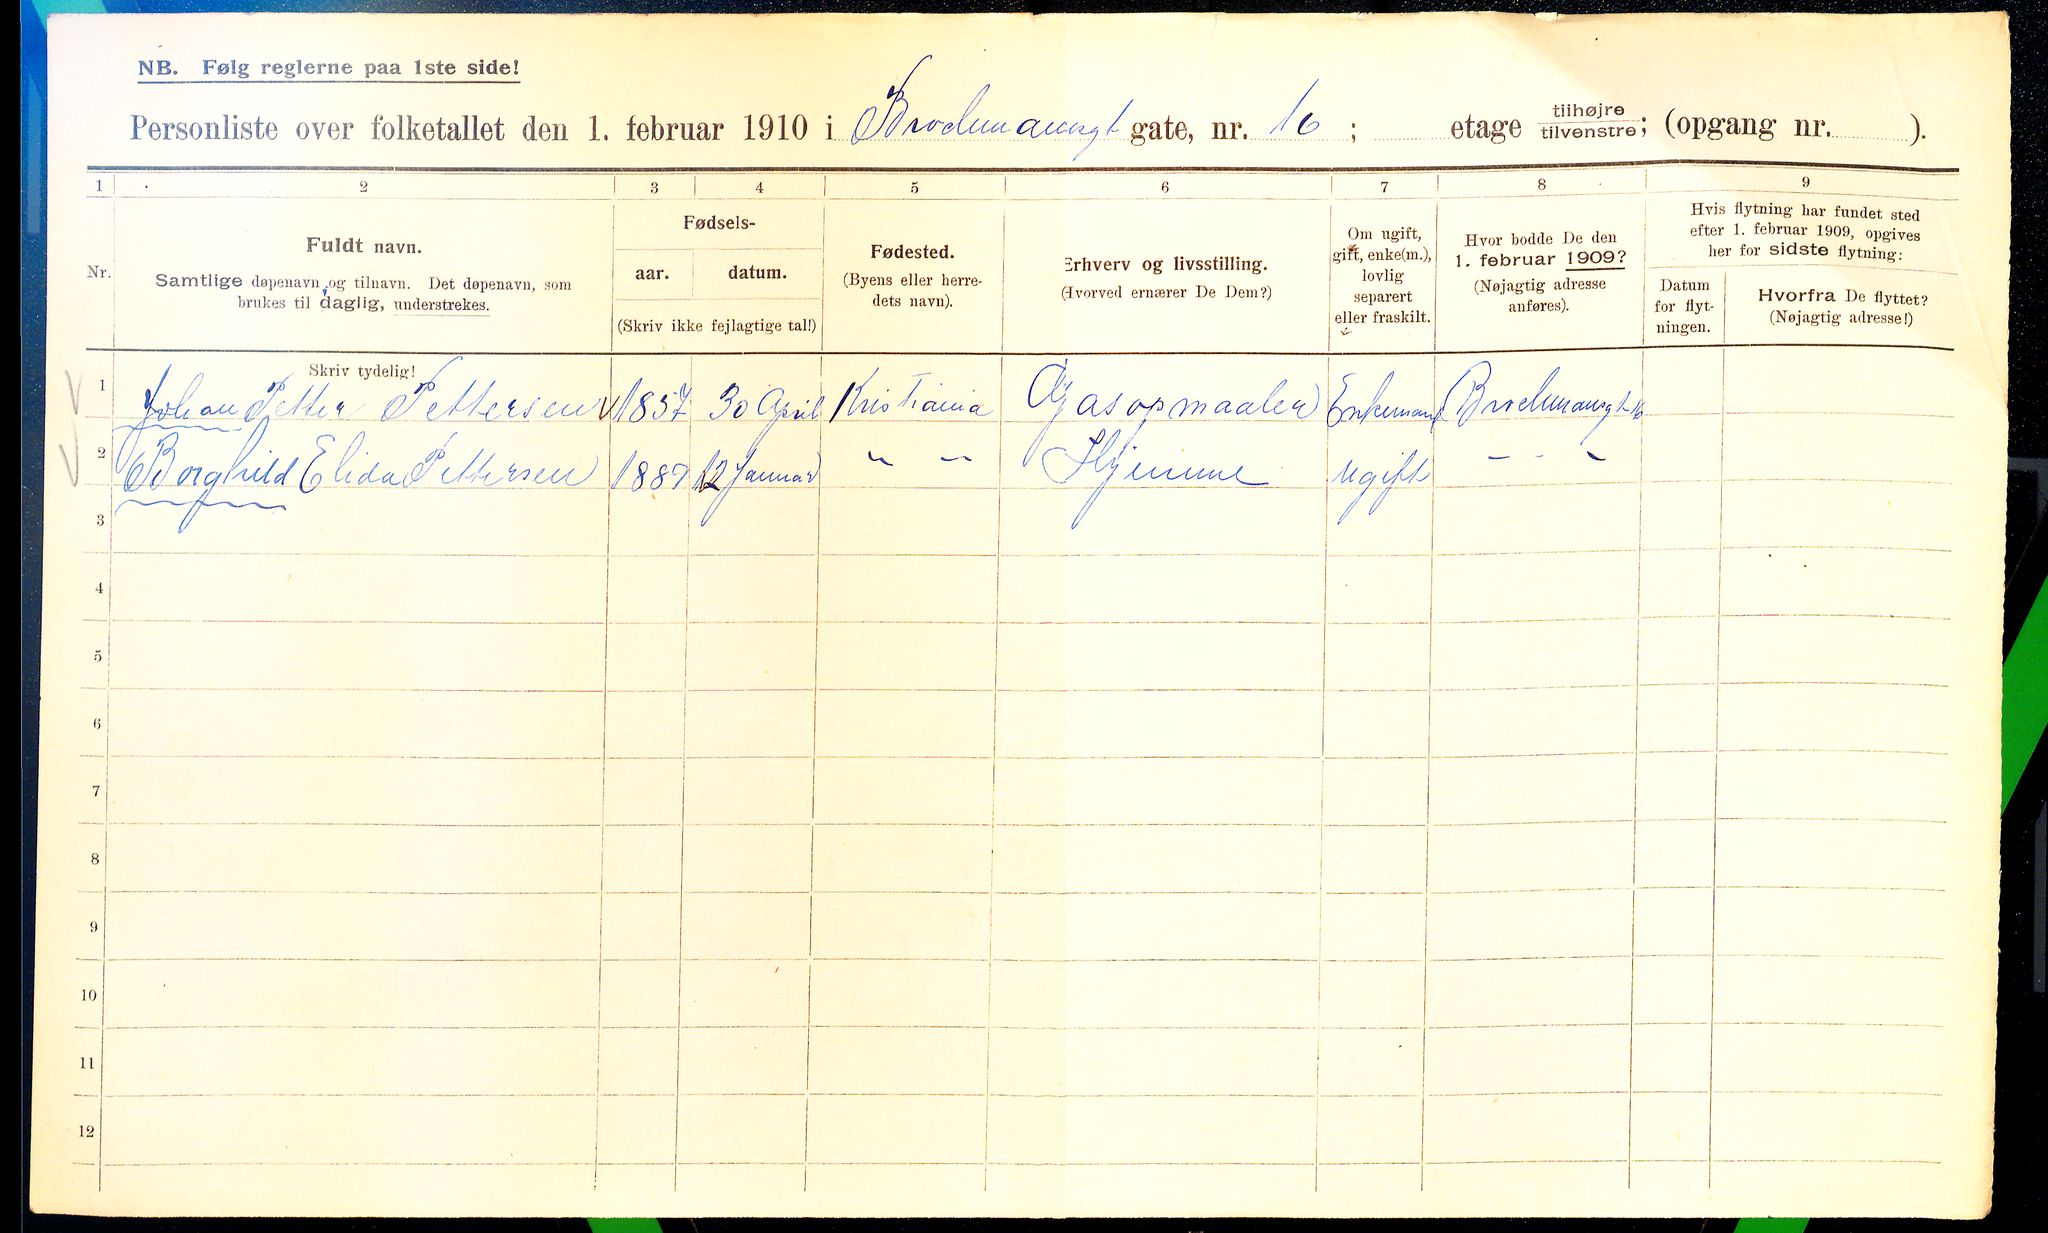 NB. Følg reglerne paa 1ste side!
Personliste over folketallet den 1. februar 1910 i Brochmannsgt gate, nr. 16 ; etage tilhøjre tilvenstre; (opgang nr. ).
1 2 3 4 5 6 7 8 9
Nr.
Fuldt navn.
Samtlige døpenavn og tilnavn. Det døpenavn, som
brukes til daglig, understrekes.
Fødsels-
aar. datum.
(Skriv ikke fejlagtige tal!)
Fødested.
(Byens eller herre-
dets navn).
Erhverv og livsstilling.
(Hvorved ernærer De Dem?)
Om ugift,
gift, enke(m.),
lovlig
separert
eller fraskilt.
Hvor bodde De den
1. februar 1909?
(Nøjagtig adresse
anføres).
Hvis flytning har fundet sted
efter 1. februar 1909, opgives
her for sidste flytning:
Datum
for flyt-
ningen.
Hvorfra De flyttet?
(Nøjagtig adresse!)
Skriv tydelig!
1 Johan Petter Pettersen 1837 30 April Kristiania Gasopmaaler Enkemand Brochmannsgt 16
2 Borghild Elida Pettersen 1887 12 Januar " " Hjemme ugift - - -
3
4
5
6
7
8
9
10
11
12